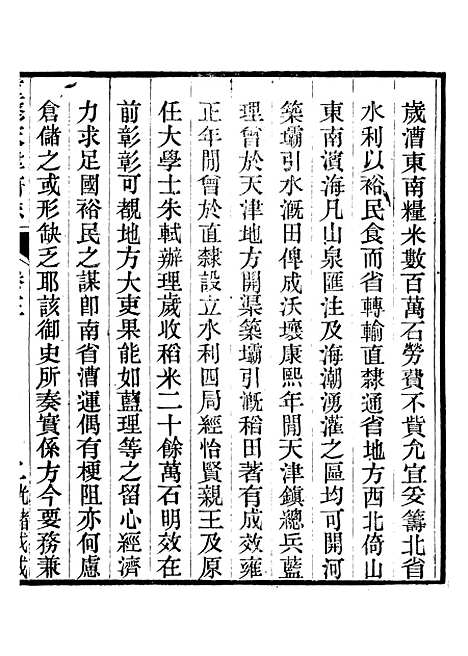 歲漕東南糧米數百萬石勞費不貲允宜妥籌北省
水利以裕民食而省轉輸直隸通省地方西北倚山
東南濱海凡山泉匯注及海潮湧灌之區均可開河
築壩引水漑田俾成沃壤康熙年閒天津鎮總兵藍
理曾於天津地方開渠築壩引漑稻田著有成效雍
正年閒曾於直隸設立水利四局經怡賢親王及原
任大學士朱軾辦理歲收稻米二十餘萬石明效在
前彰彰可覩地方大吏果能如藍理等之留心經濟
力求足國裕民之謀卽南省漕運偶有梗阻亦何慮
倉儲之或形缺乏耶該御史所奏實係方今要務兼
光緒戊戌